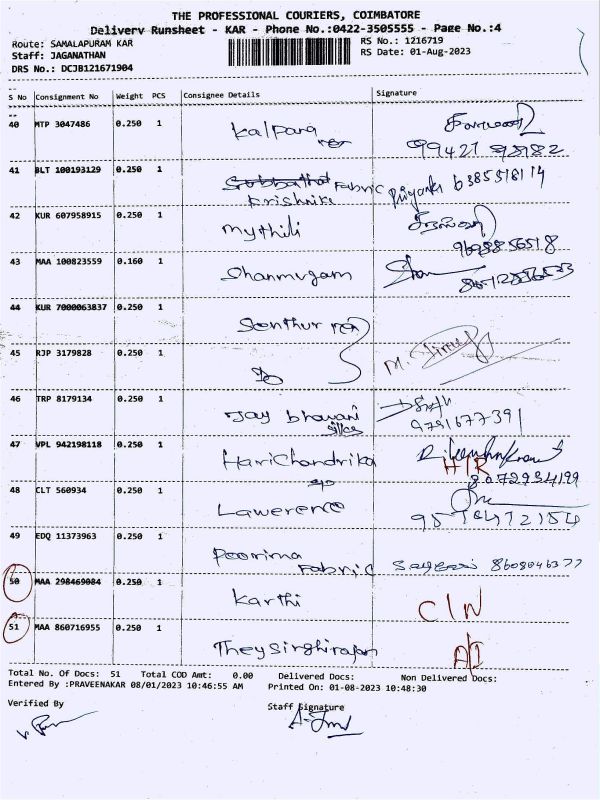 THE PROFESSIONAL COURIERS, COIMBATORE
Delivery Runsheet - KAR - Phone No.:0422-3505555 - Page No.:4
Route: SAMALAPURAM KAR
RS No.: 1216719
Staff: JAGANATHAN
RS Date: 01-Aug-2023
DRS No.: DCJB121671904
S No Consignment No Weight PCS Consignee Details Signature
40 MTP 3047486 0.250 1
Kalpana
99421 98982
41 BLT 100193129 0.250 1
Fabric Priyanka 6385518114
Krishnike
42 KUR 607958915 0.250 1
Mythili
9698856518
43 MAA 100823559 0.160 1
Shanmugam
44 KUR 7000063837 0.250 1
Senthur
45 RJP 3179828 0.250 1
M.
46 TRP 8179134 0.250 1
Jay bhavani
9791677391
47 VPL 942198118 0.250 1
HariChandrika
H/R
8072934199
48 CLT 560934 0.250 1
Lawerence
49 EDQ 11373963 0.250 1
Poorima
Fabric
8608046377
50 MAA 298469084 0.250 1
Karthi
C/N
51 MAA 860716955 0.250 1
Theysinghirajan
A/I
Total No. Of Docs: 51 Total COD Amt: 0.00 Delivered Docs: Non Delivered Docs:
Entered By :PRAVEENAKAR 08/01/2023 10:46:55 AM Printed On: 01-08-2023 10:48:30
Verified By
Staff Signature